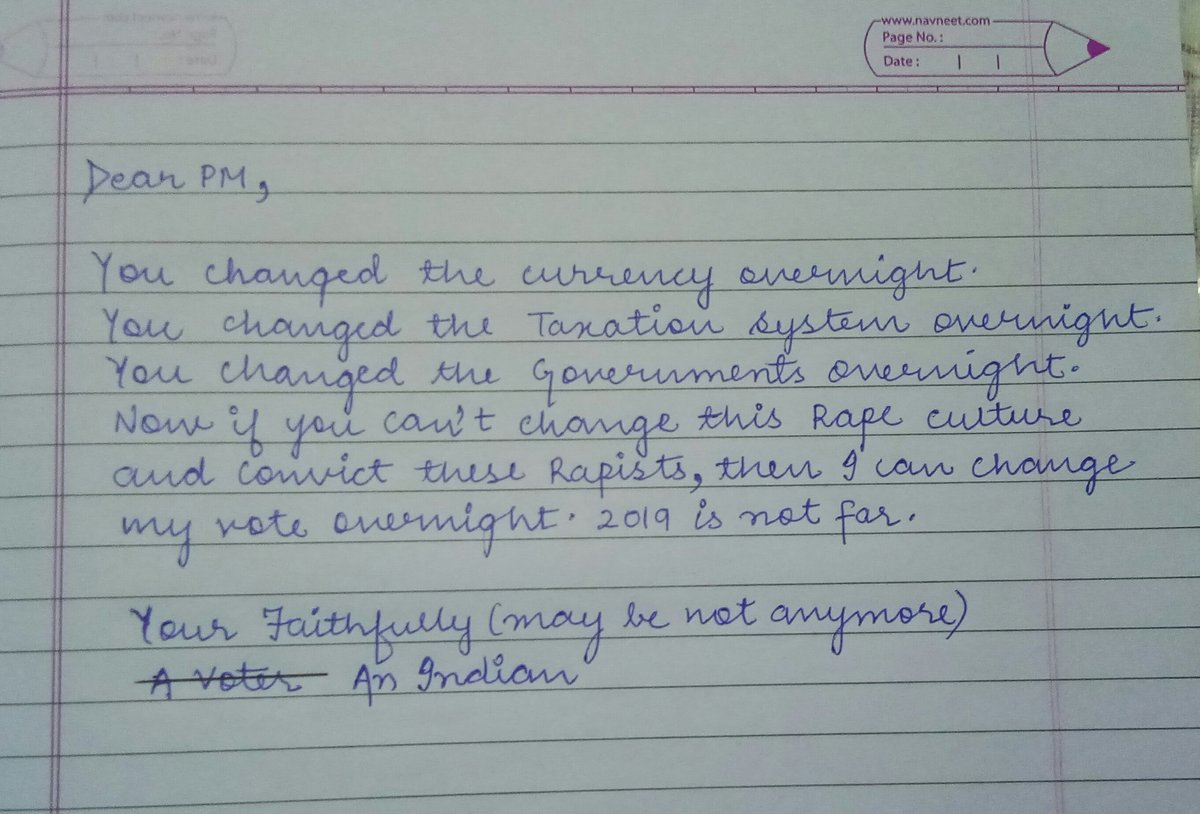 www.navneet.com
Page No.:
Date: | |
Dear PM,
You changed the currency overnight.
You changed the Taxation system overnight.
You changed the Governments overnight.
Now if you can't change this Rape culture
and convict these Rapists, then I can change
my vote overnight. 2019 is not far.
Your Faithfully (may be not anymore)
A Voter An Indian